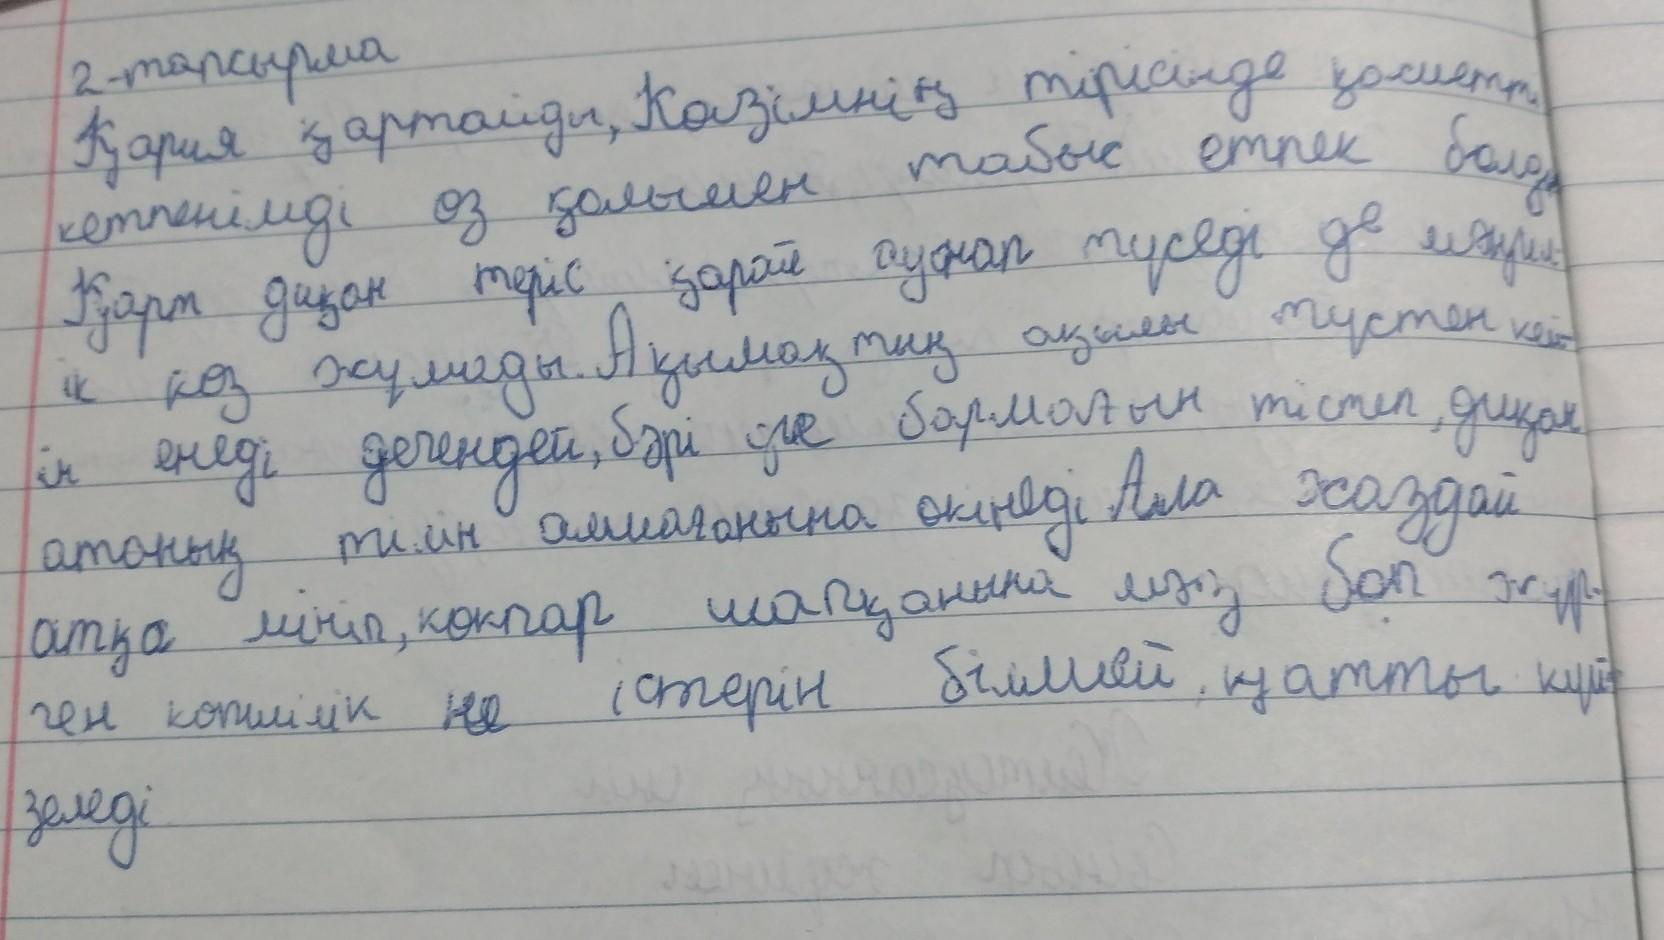 2-тапсырма
Қария қартайды, Көзімнің тірісінде қасиетті
кетпенімді өз қолыммен табыс етпек болды
Қарт диқан теріс қарай аунап түседі де мәңгіл-
ік көз жұмады. Ақымақтың ақылы түстен кей-
ін енеді дегендей, бәрі де бармағын тістеп, диқан
атаның тілін алмағанына өкінеді Ала жаздай
атқа мініп, көкпар шапқанына мәз боп жүр-
ген көпшілік не істерін білмей, қатты күй-
зеледі